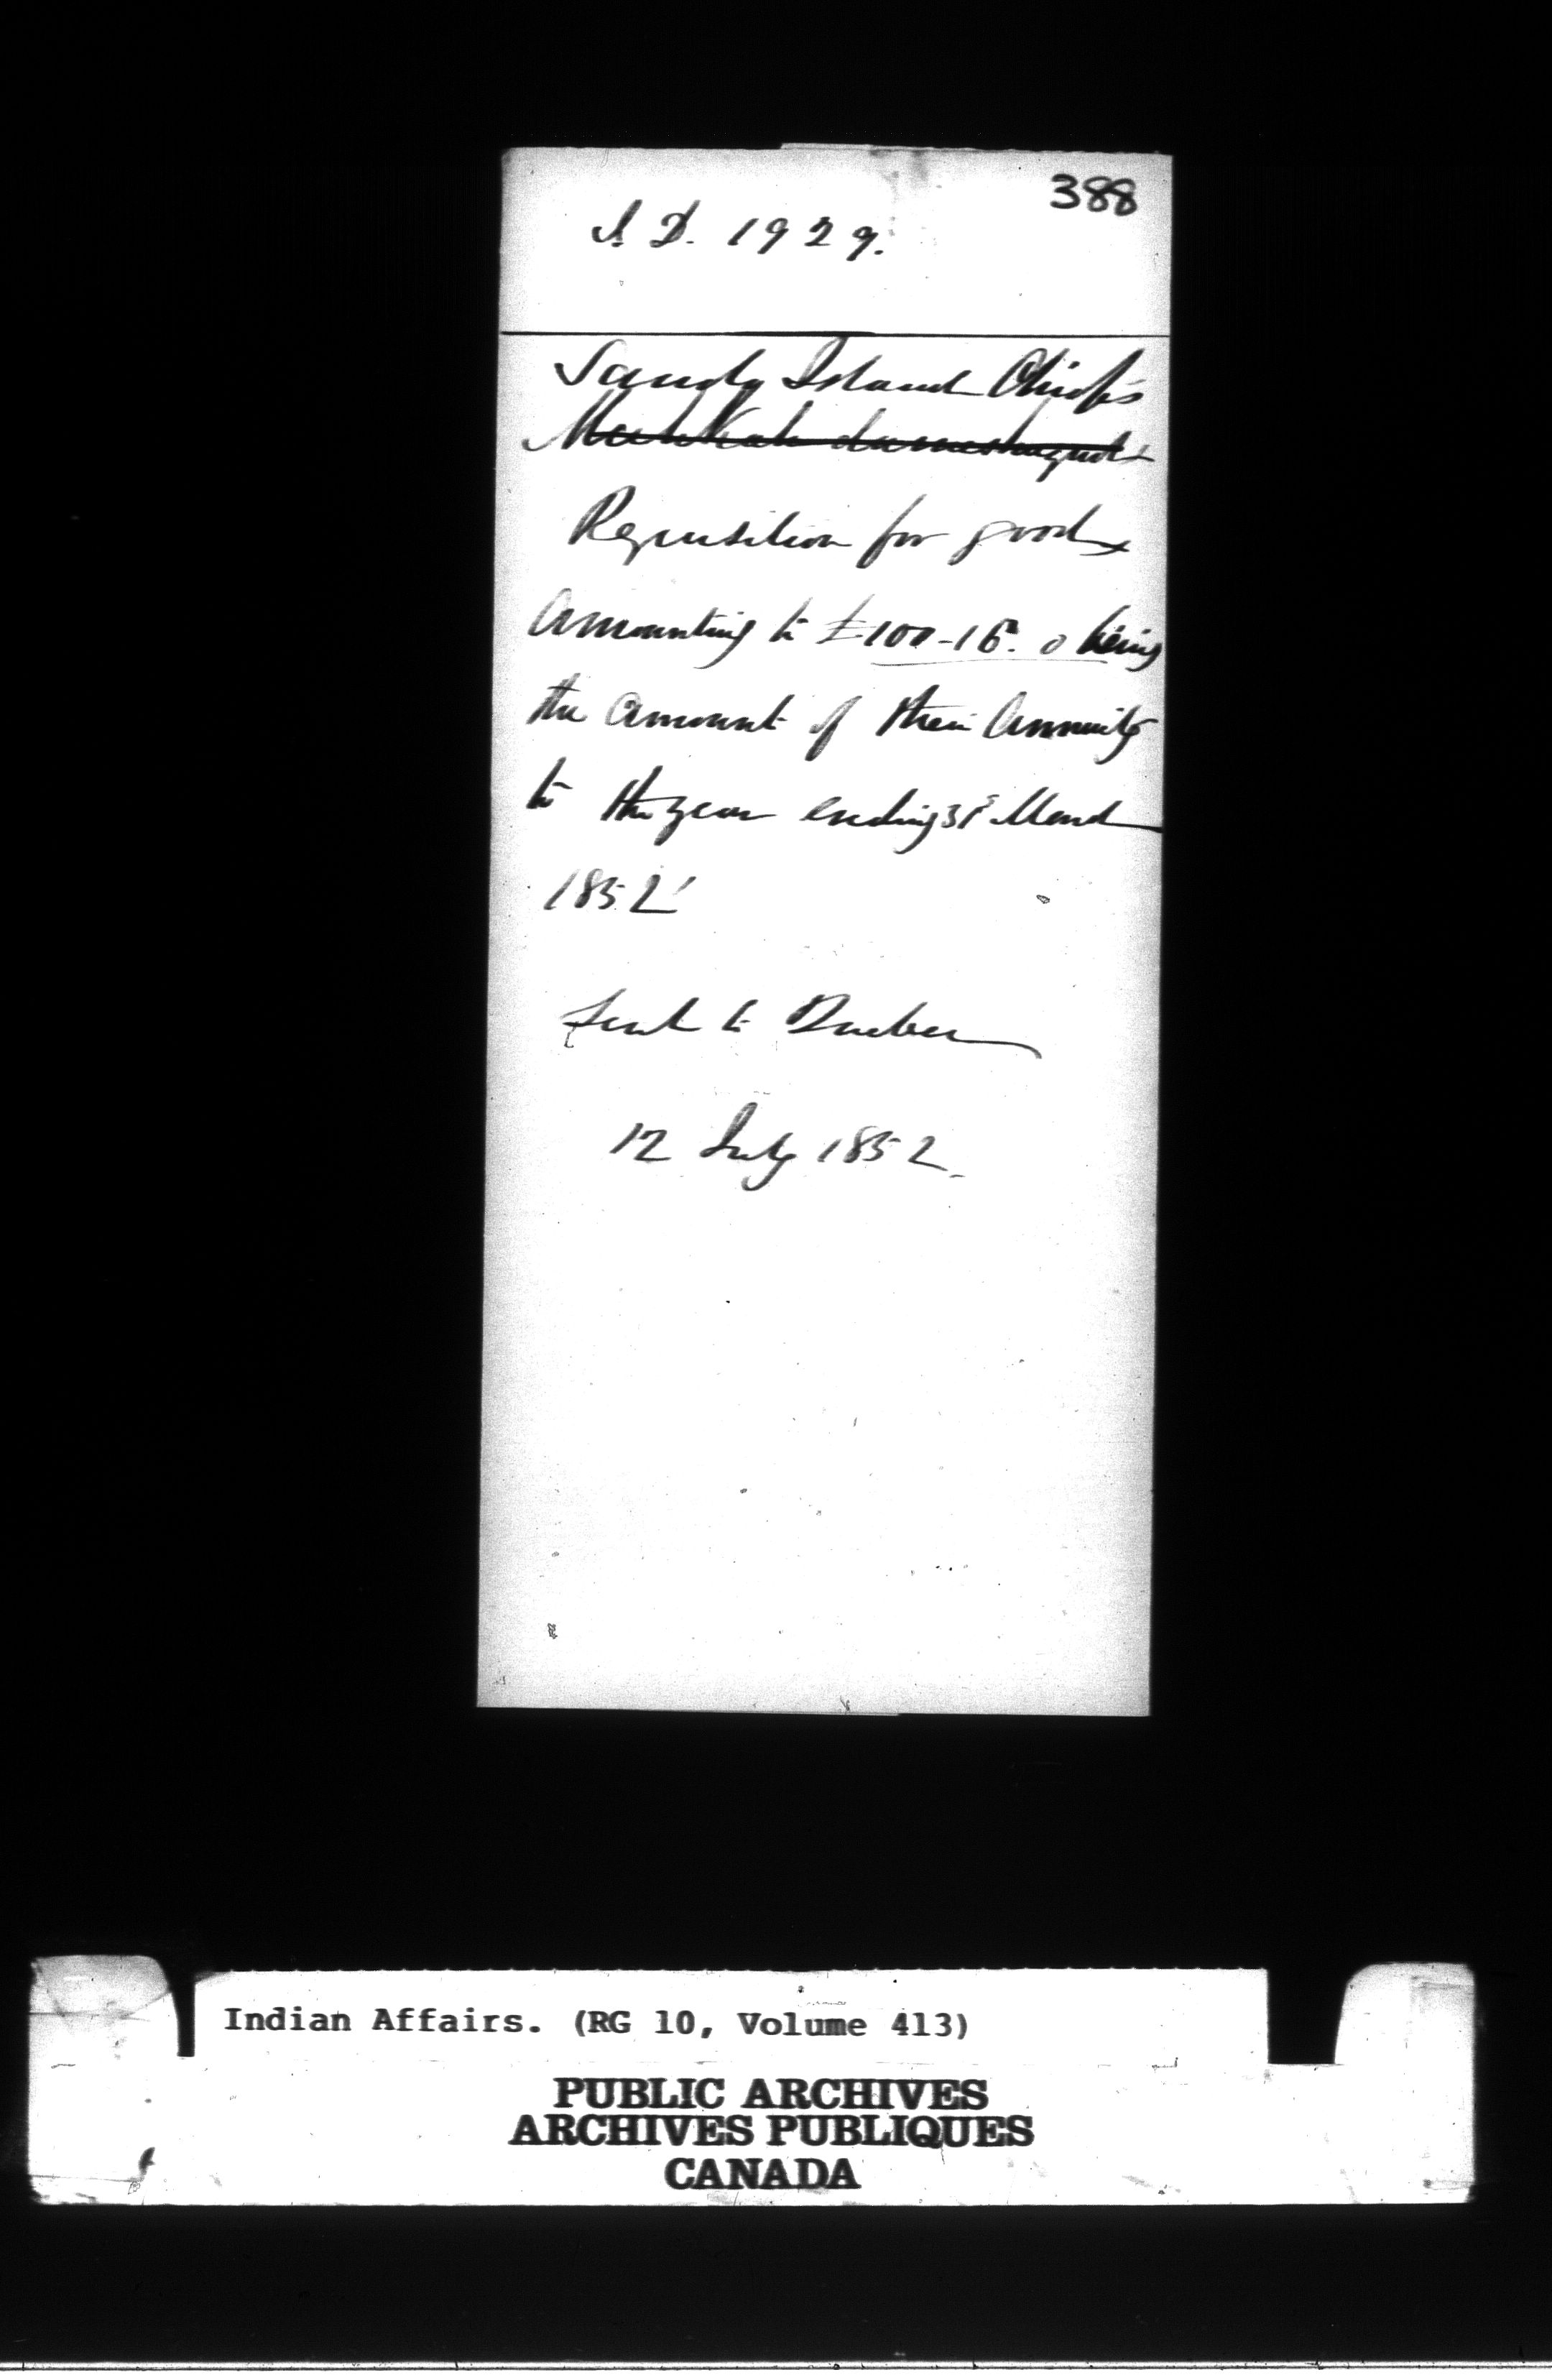 388
I. D. 1929.
Sandy Island Chiefs
Requisition for goods
Amounting to £100-16. 0 being
the amount of their Annuity
to the year ending 31st March
1852
Sent to Quebec
12 July 1852.
Indian Affairs. (RG 10, Volume 413)
PUBLIC ARCHIVES
ARCHIVES PUBLIQUES
CANADA